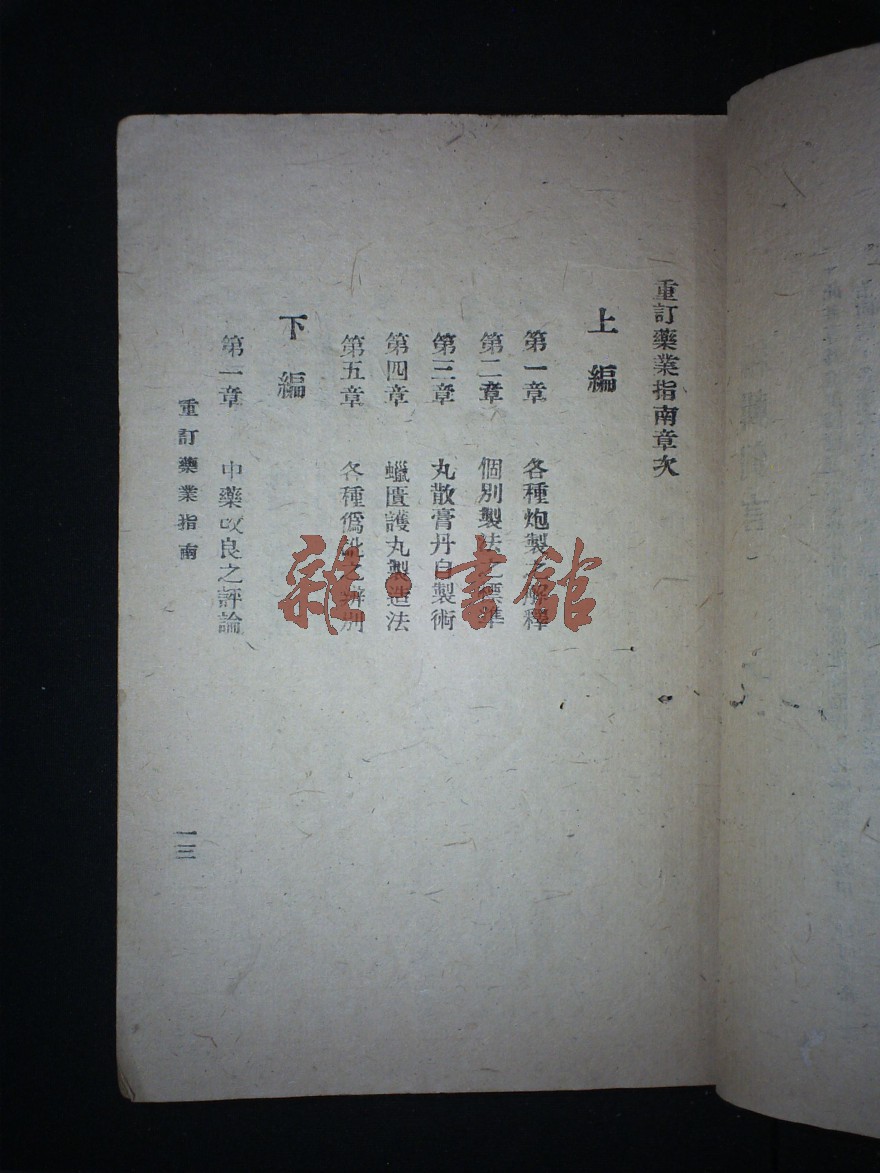 重訂藥業指南章次
上編
第一章 各種炮製之解釋
第二章 個別製法之標準
第三章 丸散膏丹自製術
第四章 蠟匱護丸製造法
第五章 各種僞訛之辨別
下編
第一章 中藥改良之評論
重訂藥業指南
一三
雜·書館